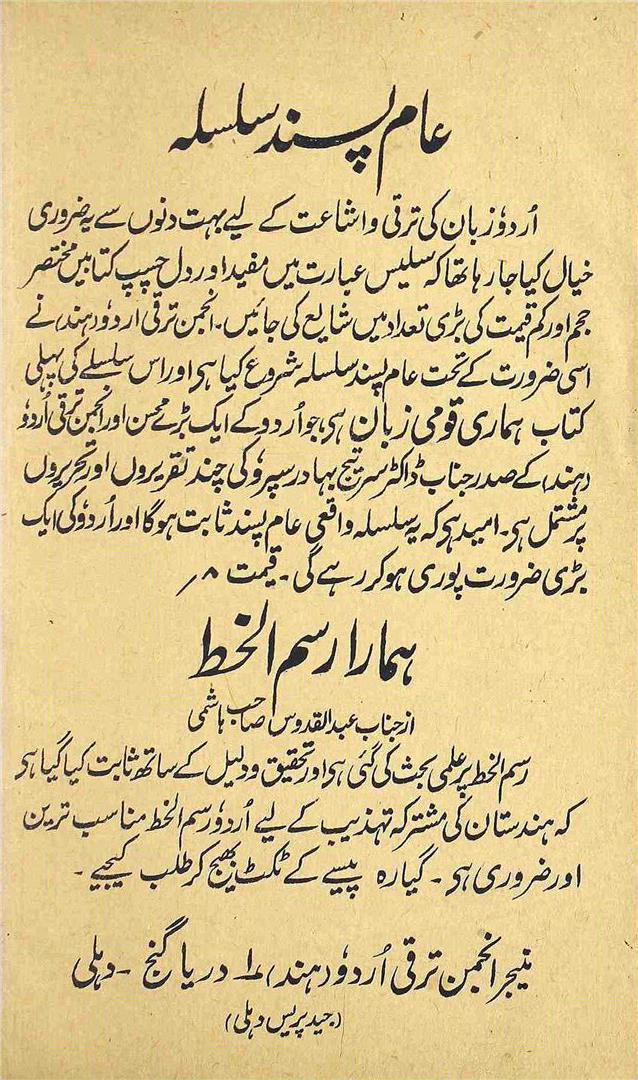 عام پسند سلسلہ
اُردوٗ زبان کی ترقی و اشاعت کے لیے بہت دنوں سے یہ ضروری
خیال کیا جا رہا تھا کہ سلیس عبارت میں مفید اور دل چسپ کتابیں مختصر
حجم اور کم قیمت کی بڑی تعداد میں شایع کی جائیں۔ انجمن ترقی اردو (ہند) نے
اسی ضرورت کے تحت عام پسند سلسلہ شروع کیا ہی اور اس سلسلے کی پہلی
کتاب ہماری قومی زبان ہی، جو اُردو کے ایک بڑے محسن اور انجمن ترقی اُردوٗ
(ہند) کے صدر جناب ڈاکٹر سر تیج بہادر سپروٗ کی چند تقریروں اور تحریروں
پر مشتمل ہی۔ امید ہی کہ یہ سلسلہ واقعی عام پسند ثابت ہوگا اور اُردوٗ کی ایک
بڑی ضرورت پوری ہو کر رہے گی۔ قیمت ۸ر
ہمارا رسم الخط
از جناب عبدالقدوس صاحب ہاشمی
رسم الخط پر علمی بحث کی گئی ہی اور تحقیق و دلیل کے ساتھ ثابت کیا گیا ہی
کہ ہندستان کی مشترکہ تہذیب کے لیے اُردوٗ رسم الخط مناسب ترین
اور ضروری ہی۔ گیارہ پیسے کے ٹکٹ بھیج کر طلب کیجیے۔
منیجر انجمن ترقی اُردوٗ (ہند) ۱ دریا گنج۔ دہلی
(جید پریس دہلی)